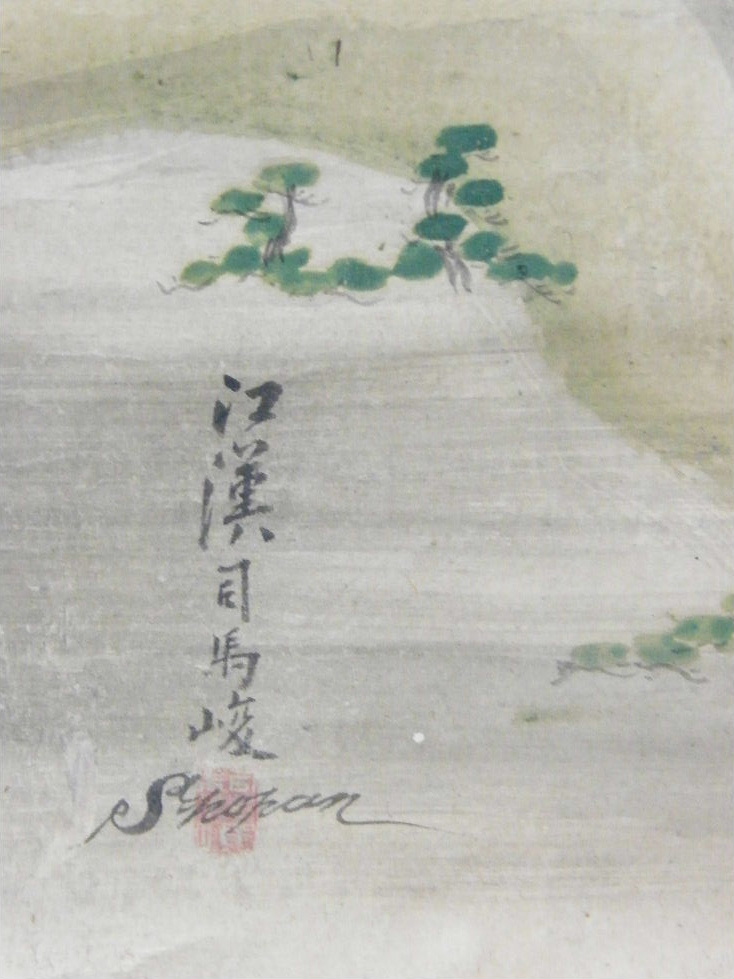 江漢司馬峻
Skokan